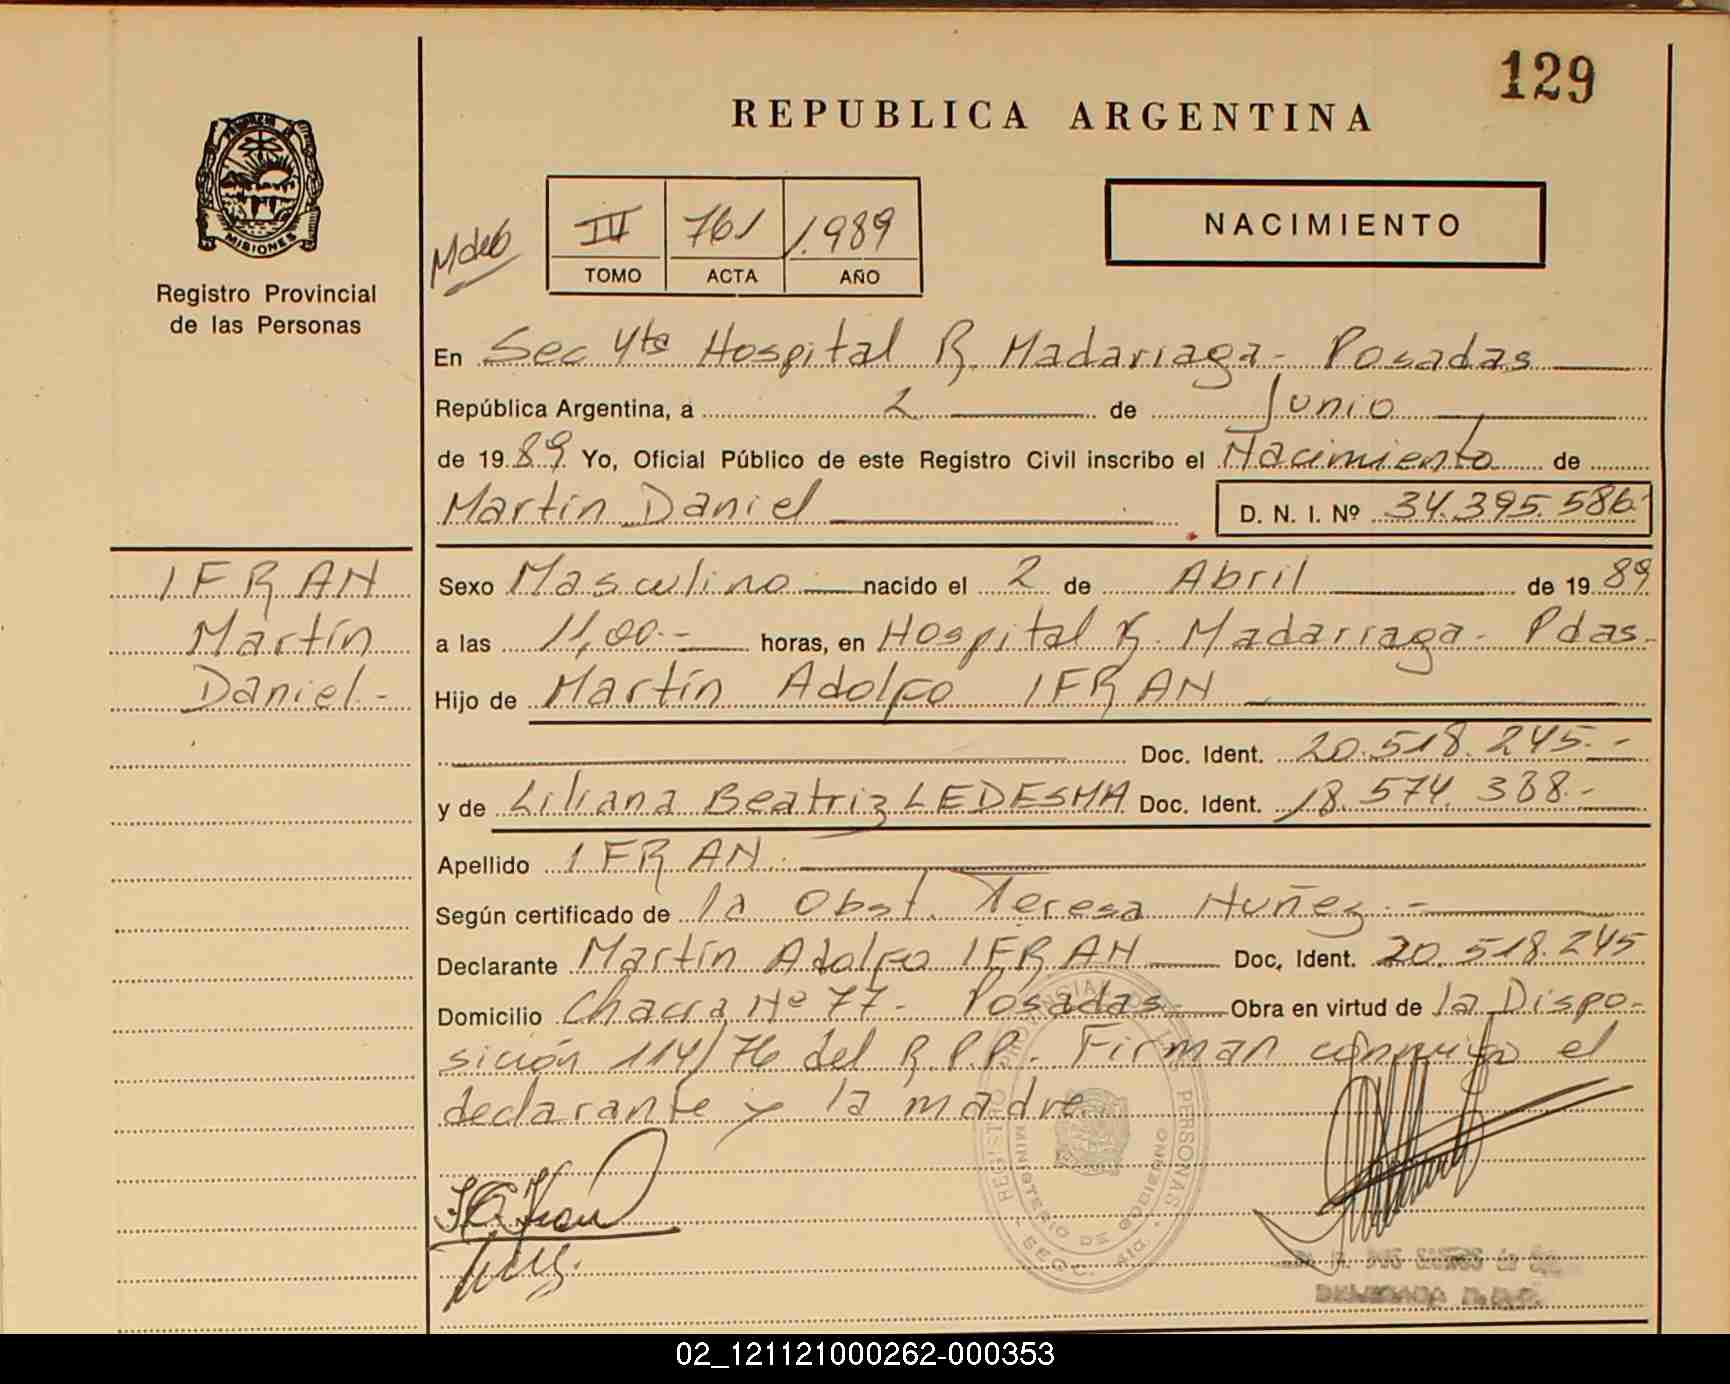 129
REPUBLICA ARGENTINA
MISIONES
Registro Provincial
de las Personas
IV 761 1.989
TOMO ACTA AÑO
NACIMIENTO
En Sec 4ta Hospital R. Madariaga - Posadas
República Argentina, a 2 de Junio
de 19 89 Yo, Oficial Público de este Registro Civil inscribo el Nacimiento de
Martín Daniel D. N. I. Nº 34.395.586
IFRAN
Martín
Daniel.-
Sexo Masculino nacido el 2 de Abril de 19 89
a las 11,00.- horas, en Hospital R. Madariaga - Pdas.
Hijo de Martín Adolfo IFRAN
Doc. Ident. 20.518.245.-
y de Liliana Beatriz LEDESMA Doc. Ident. 18.574.388.-
Apellido IFRAN.
Según certificado de la Obst. Teresa Nuñez.-
Declarante Martín Adolfo IFRAN Doc. Ident. 20.518.245
Domicilio Chacra Nº 77 - Posadas Obra en virtud de la Dispo-
sición 114/76 del R.P.P. Firman conmigo el
declarante y la madre
REGISTRO PROVINCIAL DE LAS PERSONAS
MINISTERIO DE GOBIERNO
02_121121000262-000353